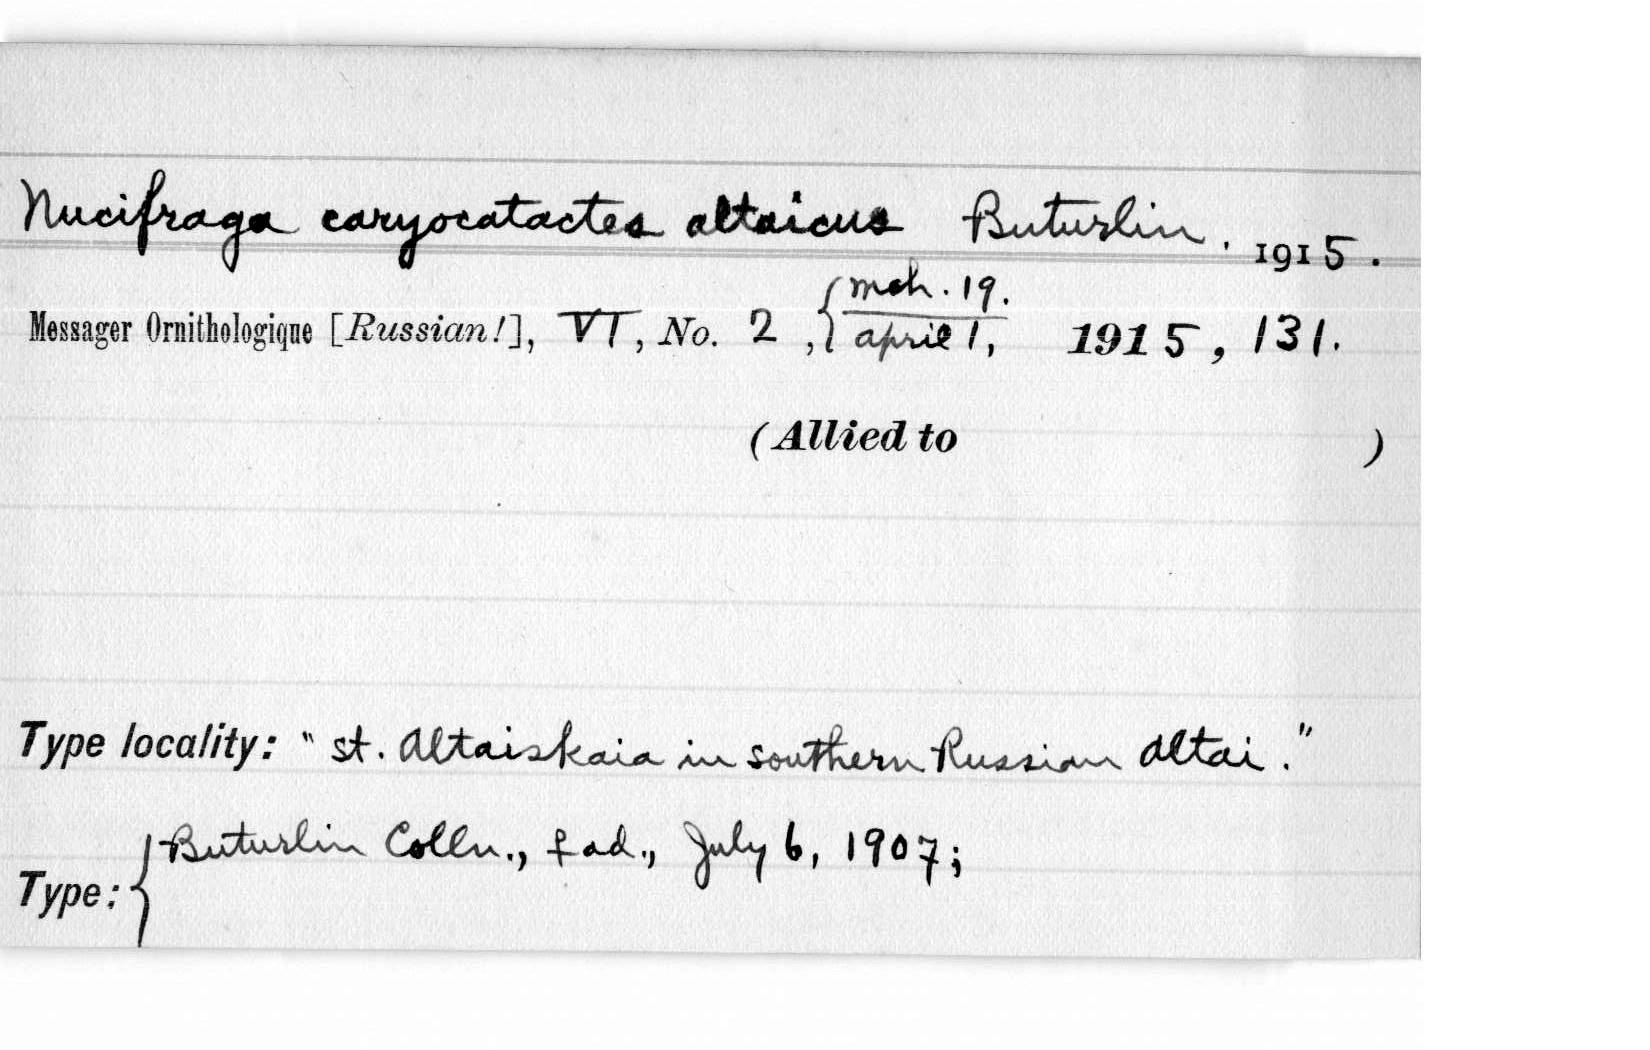 Nucifraga caryocatactes altaicus Buturlin. 1915.
Messager Ornithologique [Russian!], VI, No. 2, { mch. 19. / april 1, 1915, 131.
(Allied to )
Type locality: "st. Altaiskaia in southern Russian Altai."
Type: { Buturlin Colln., ♀ ad., July 6, 1907;